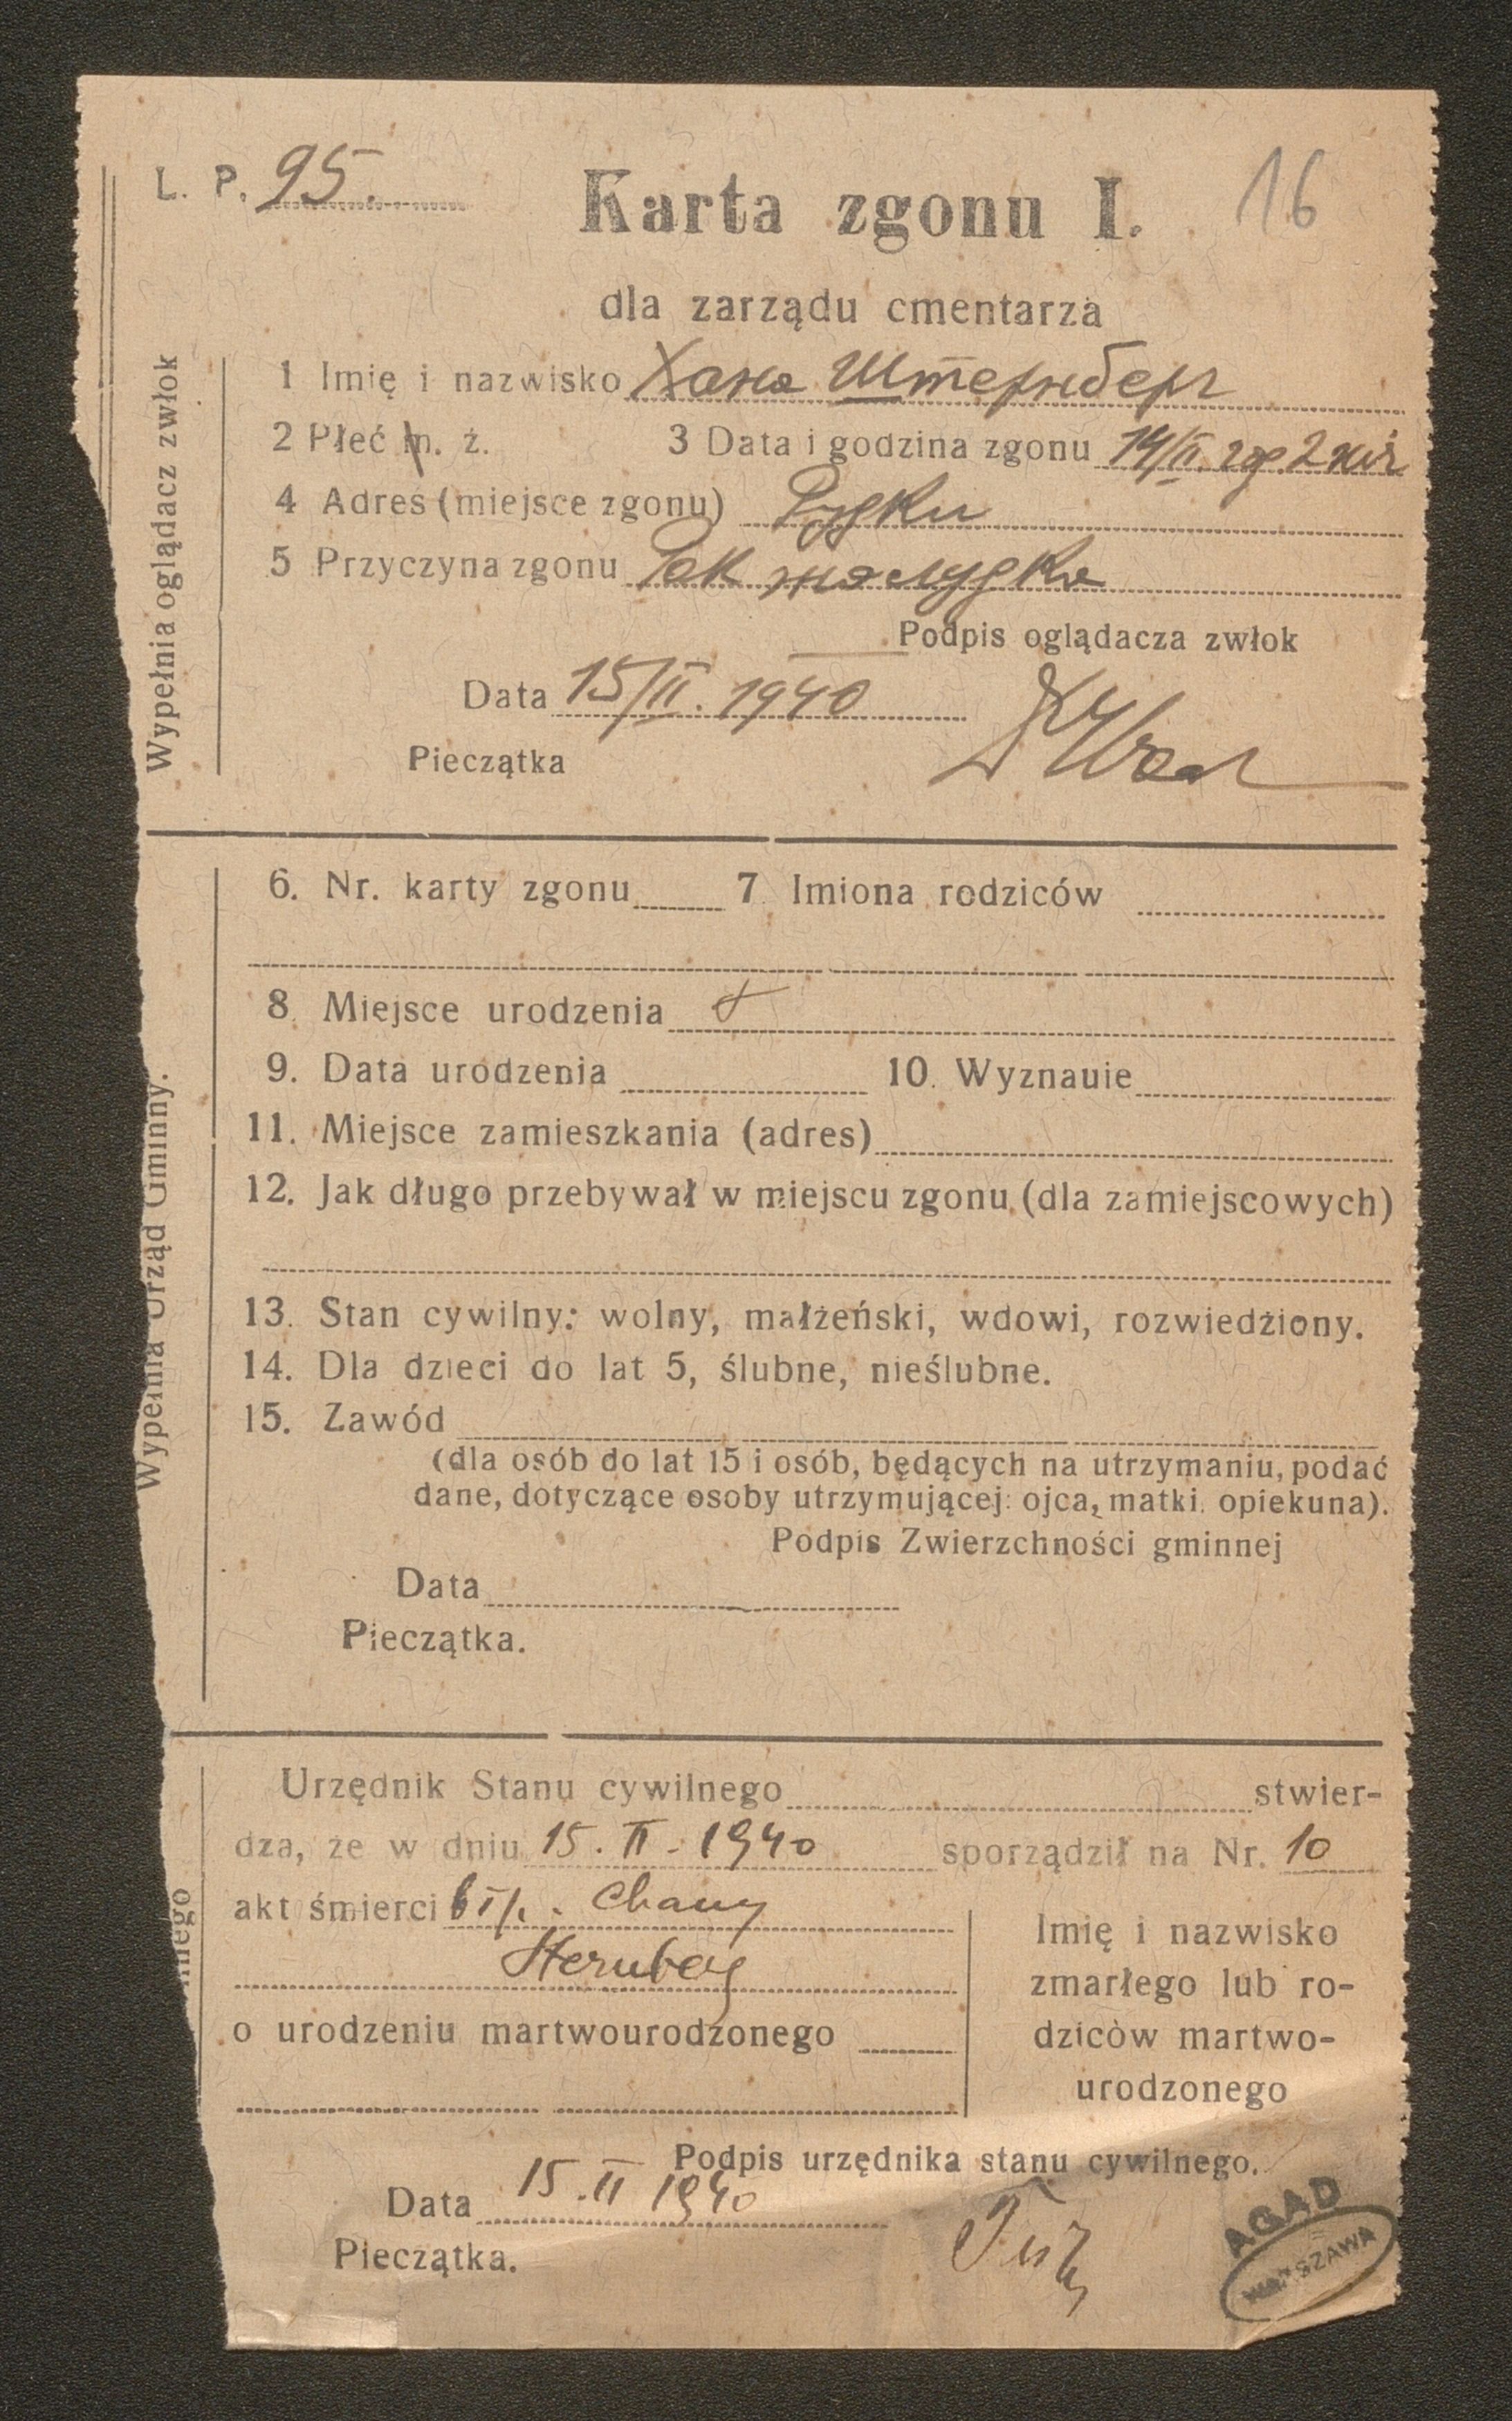 L. P. 95.
Karta zgonu I.
16
dla zarządu cmentarza
Wypełnia oglądacz zwłok
1 Imię i nazwisko Хана Штернберг
2 Płeć m. ż. 3 Data i godzina zgonu 14/II. год 2
4 Adres (miejsce zgonu) Рудки
5 Przyczyna zgonu Рак жолудка
Podpis oglądacza zwłok
Data 15/II. 1940
Pieczątka
Wypełnia Urząd Gminny.
6. Nr. karty zgonu 7 Imiona rodziców
8. Miejsce urodzenia
9. Data urodzenia 10. Wyznauie
11. Miejsce zamieszkania (adres)
12. Jak długo przebywał w miejscu zgonu (dla zamiejscowych)
13. Stan cywilny: wolny, małżeński, wdowi, rozwiedziony.
14. Dla dzieci do lat 5, ślubne, nieślubne.
15. Zawód
(dla osób do lat 15 i osób, będących na utrzymaniu, podać
dane, dotyczące osoby utrzymującej: ojca, matki. opiekuna).
Podpis Zwierzchności gminnej
Data
Pieczątka.
Urzędnik Stanu cywilnego stwier-
dza, że w dniu 15. II. 1940 sporządził na Nr. 10
akt śmierci Chany
Sternberg
o urodzeniu martwourodzonego
Imię i nazwisko
zmarłego lub ro-
dziców martwo-
urodzonego
Podpis urzędnika stanu cywilnego.
Data 15.II 1940
Pieczątka.
AGAD
WARSZAWA